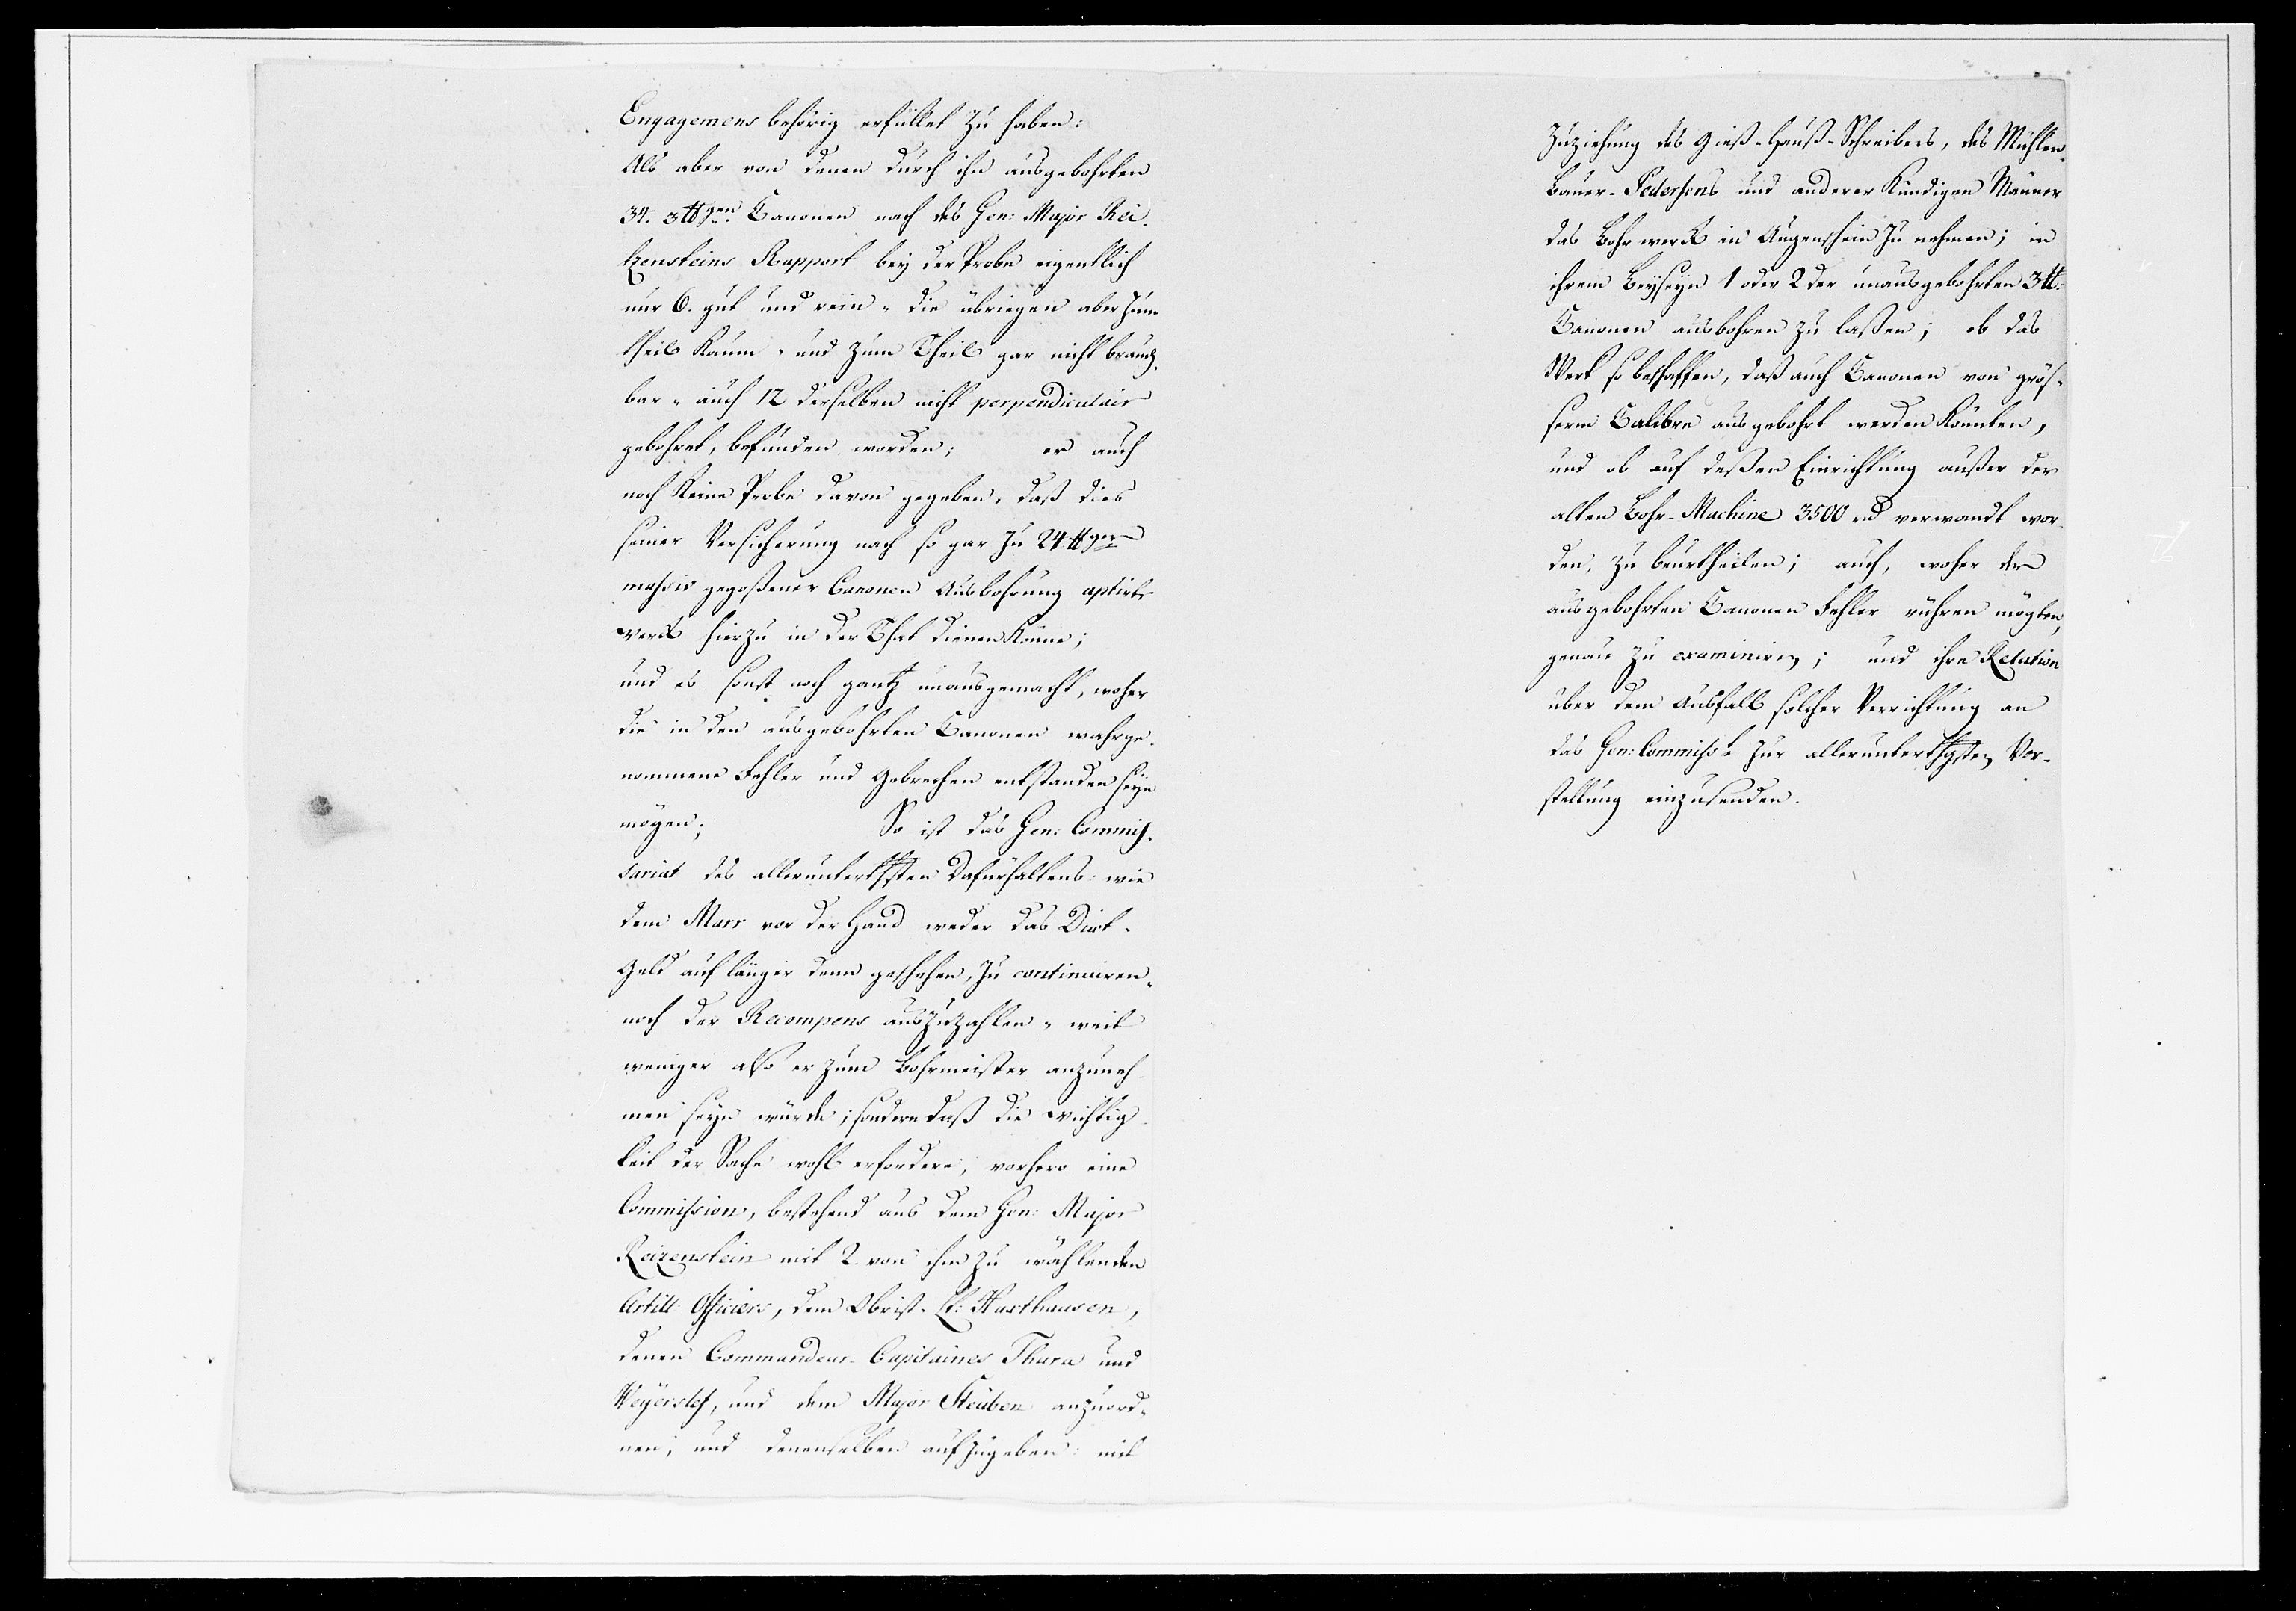 Engagemens behörig erfüllet zu haben:
Als aber von denen durch ihn ausgebohrten
34. 3 ℔gen Canonen nach des Gen: Major Rei-
tzensteins Rapport bey der Probe eigentlich
nur 6. gut und rein, die übriegen aber zum
theil kaum, und zum Theil gar nicht brauch-
bar, auch 12 derselben nicht perpendiculair
gebohret, befunden worden; er auch
noch keine Probe davon gegeben, daß dies
seiner Versicherung nach so gar zu 24 ℔ger
massiv gegoßener Canonen Ausbohrung aptirte
Werck hierzu in der That dienen könne;
und es sonst noch gantz unausgemacht, woher
die in den ausgebohrten Canonen wahrge-
nommene Fehler und Gebrechen entstanden seyn
mögen; So ist das Gen: Commis-
sariat des allerunterthsten Dafürhaltens: wie
dem Marr vor der Hand weder das Diæt-
Geld auf länger denn geschehen, zu continuiren,
noch der Recompens auszuzahlen, weit
weniger also er zum Bohrmeister anzuneh-
men seyn würde; sondern daß die Wichtig-
keit der Sache wohl erfordere, vorhero eine
Commission, bestehend aus dem Gen: Major
Reizenstein mit 2. von ihm zu wählenden
Artill: Officiers, dem Obrist-Lt: Harthausen,
denen Commandeur-Capitaines Thura und
Weyerslef, und dem Major Steuben anzuord-
nen; und denenselben aufzugeben: mit
Zuziehung des Gieß-Hauß-Schreibers, des Mühlen-
Bauer-Pedersens und anderer kündigen Männer
das Bohrwerck in Augenschein zu nehmen; in
ihrem Beyseyn 1 oder 2 der unausgebohrten 3 ℔:
Canonen ausbohren zu laßen; ob das
Werk so beschaffen, daß auch Canonen von grös-
serm Calibre ausgebohrt werden könnten,
und ob auf deßen Einrichtung außer der
alten Bohr-Machine 3500 rd verwandt wor-
den, zu beurtheilen; auch, woher der
ausgebohrten Canonen Fehler rühren mögten,
genau zu examiniren; und ihre Relation
über dem Ausfall solcher Verrichtung an
das Gen: Commisst zur allerunterthgsten Vor-
stellung einzusenden.